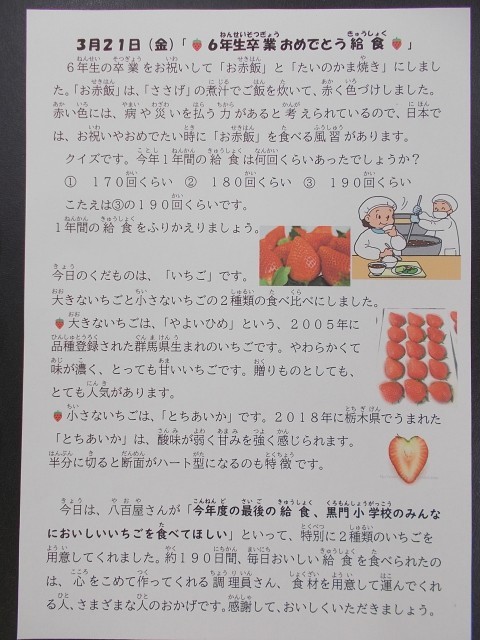 3月21日(金)「🍓6年生卒業おめでとう給食🍓」
6年生の卒業をお祝いして「お赤飯」と「たいのかま焼き」にしまし
た。「お赤飯」は、「ささげ」の煮汁でご飯を炊いて、赤く色づけしました。
赤い色には、病や災いを払う力があると考えられているので、日本で
は、お祝いやおめでたい時に「お赤飯」を食べる風習があります。
クイズです。今年1年間の給食は何回くらいあったでしょうか?
① 170回くらい ② 180回くらい ③ 190回くらい
こたえは③の190回くらいです。
1年間の給食をふりかえりましょう。
今日のくだものは、「いちご」です。
大きないちごと小さないちごの2種類の食べ比べにしました。
🍓大きないちごは、「やよいひめ」という、2005年に
品種登録された群馬県生まれのいちごです。やわらかくて
味が濃く、とっても甘いいちごです。贈りものとしても、
とても人気があります。
🍓小さないちごは、「とちあいか」です。2018年に栃木県でうまれた
「とちあいか」は、酸味が弱く甘みを強く感じられます。
半分に切ると断面がハート型になるのも特徴です。
今日は、八百屋さんが「今年度の最後の給食、黒門小学校のみんな
においしいいちごを食べてほしい」といって、特別に2種類のいちごを
用意してくれました。約190日間、毎日おいしい給食を食べられたの
は、心をこめて作ってくれる調理員さん、食材を用意して運んでくれ
る人、さまざまな人のおかげです。感謝して、おいしくいただきましょう。